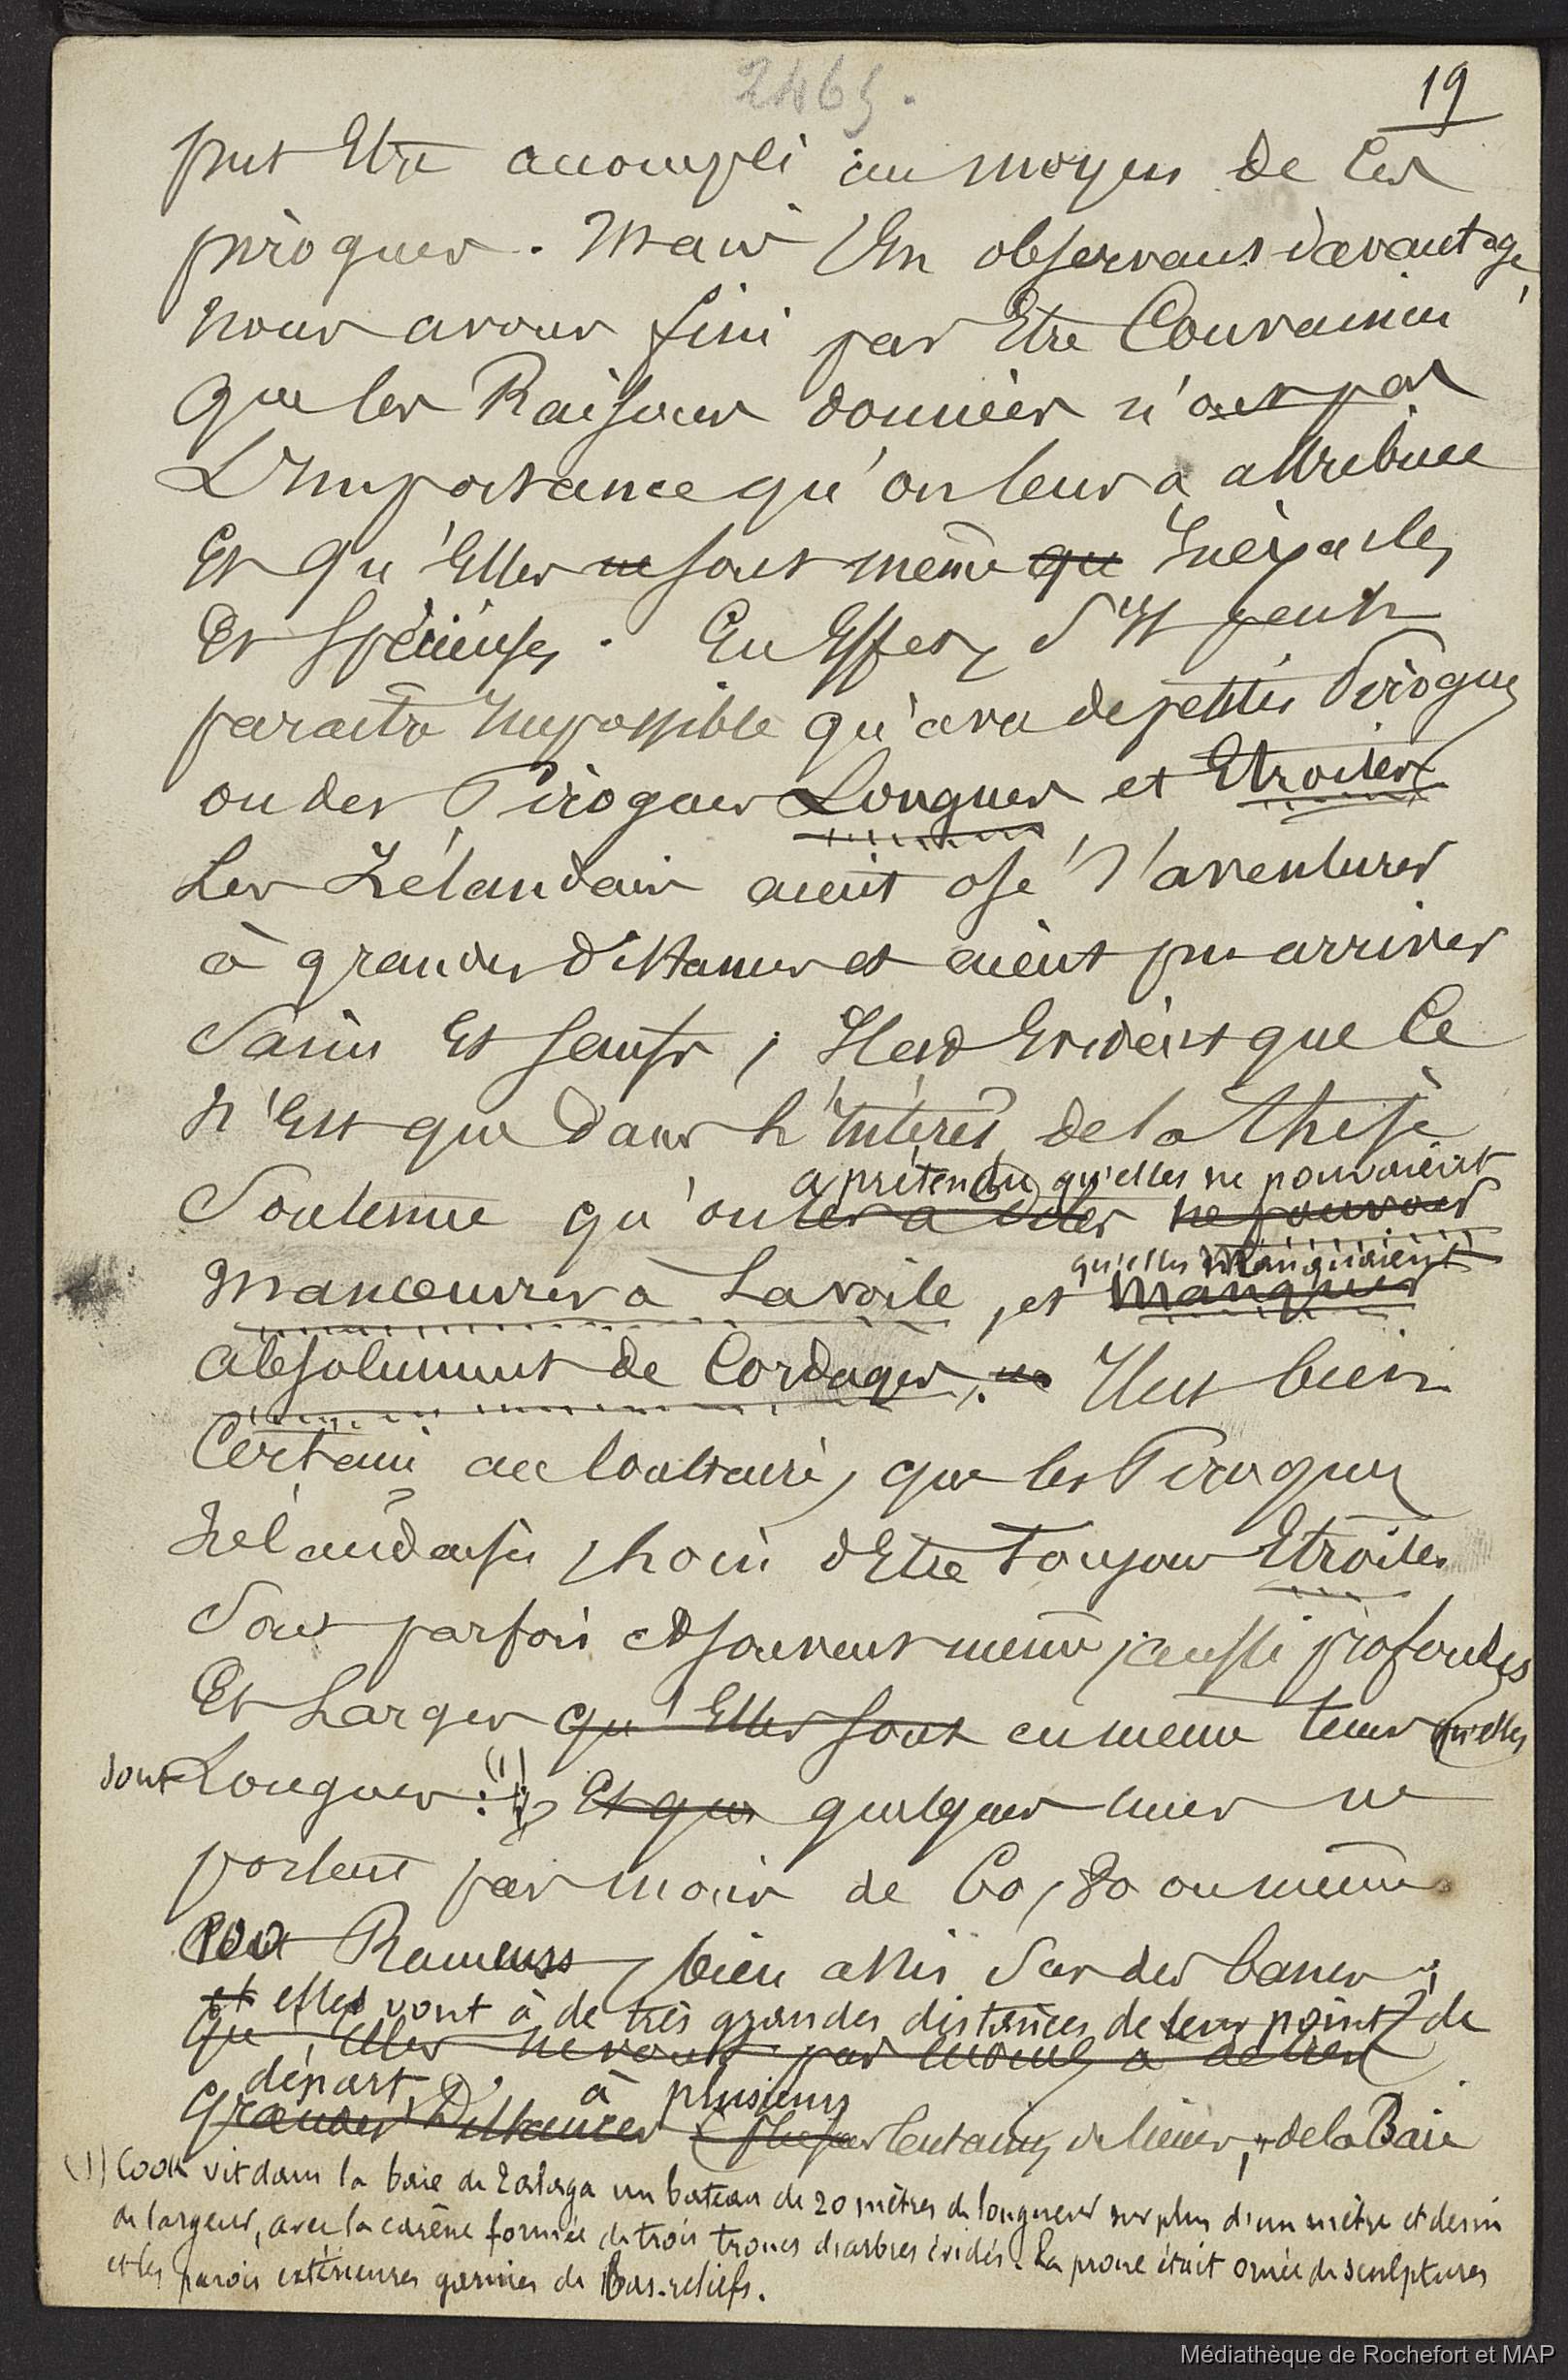 2465.
19
put Etre accompli au moyen de Ces
pirogues. Mais En observant davantage,
Nous avons fini par Etre Convaincu
Que les Raisons données n'ont pas
L'Importance qu'on leur a attribuée
Et Qu'Elles ne sont même que Inéxactes
Et Spécieuses. En Effet, S'Il peut
paraitre Impossible qu'avec de petites Pirogues
ou des Pirogues Longues et Etroites
Les Zélandais aient osé s'aventurer
à grandes distances et aient pu arriver
Sains Et Saufs, Il est Evident que Ce
N'Est que dans L'Intérêt de la thèse
a prétendu qu'elles ne pouvaient
Soutenue qu'on les a dites ne pouvoir
qu'elles manquaient
Manoeuvrer à La voile, et manquer
absolument de Cordages. Il est bien
Certain au Contraire, que les Pirogues
Zélandaises, loin d'Etre Toujours Etroites
Sont parfois et souvent même, aussi profondes
Et Larges qu'Elles sont en même tems qu'elles
sont Longues: (1) Et que quelques unes ne
portent pas moins de 60, 80 ou même
100 Rameurs, bien assis Sur des bancs;
et elles vont à de très grandes distances de leur point de
Qu'Elles ne vont pas moins à de très
départ, à plusieurs
Grandes Distances centaines de lieues, de la Baie
(1) Cook vit dans la baie de un bateau de 20 mètres de longueur sur plus d'un mètre et demi
de largeur, avec la carène formée de trois troncs d'arbres évidés. La proue était ornée de sculptures
et les parois extérieures garnies de Bas-reliefs.
Médiathèque de Rochefort et MAP